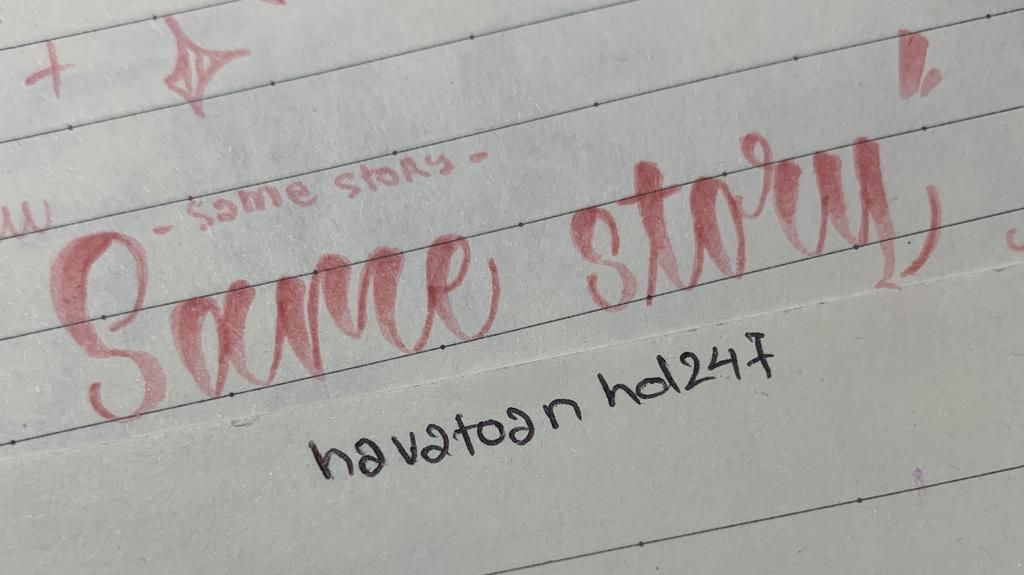 - some story -
Same story
havatoan hd247